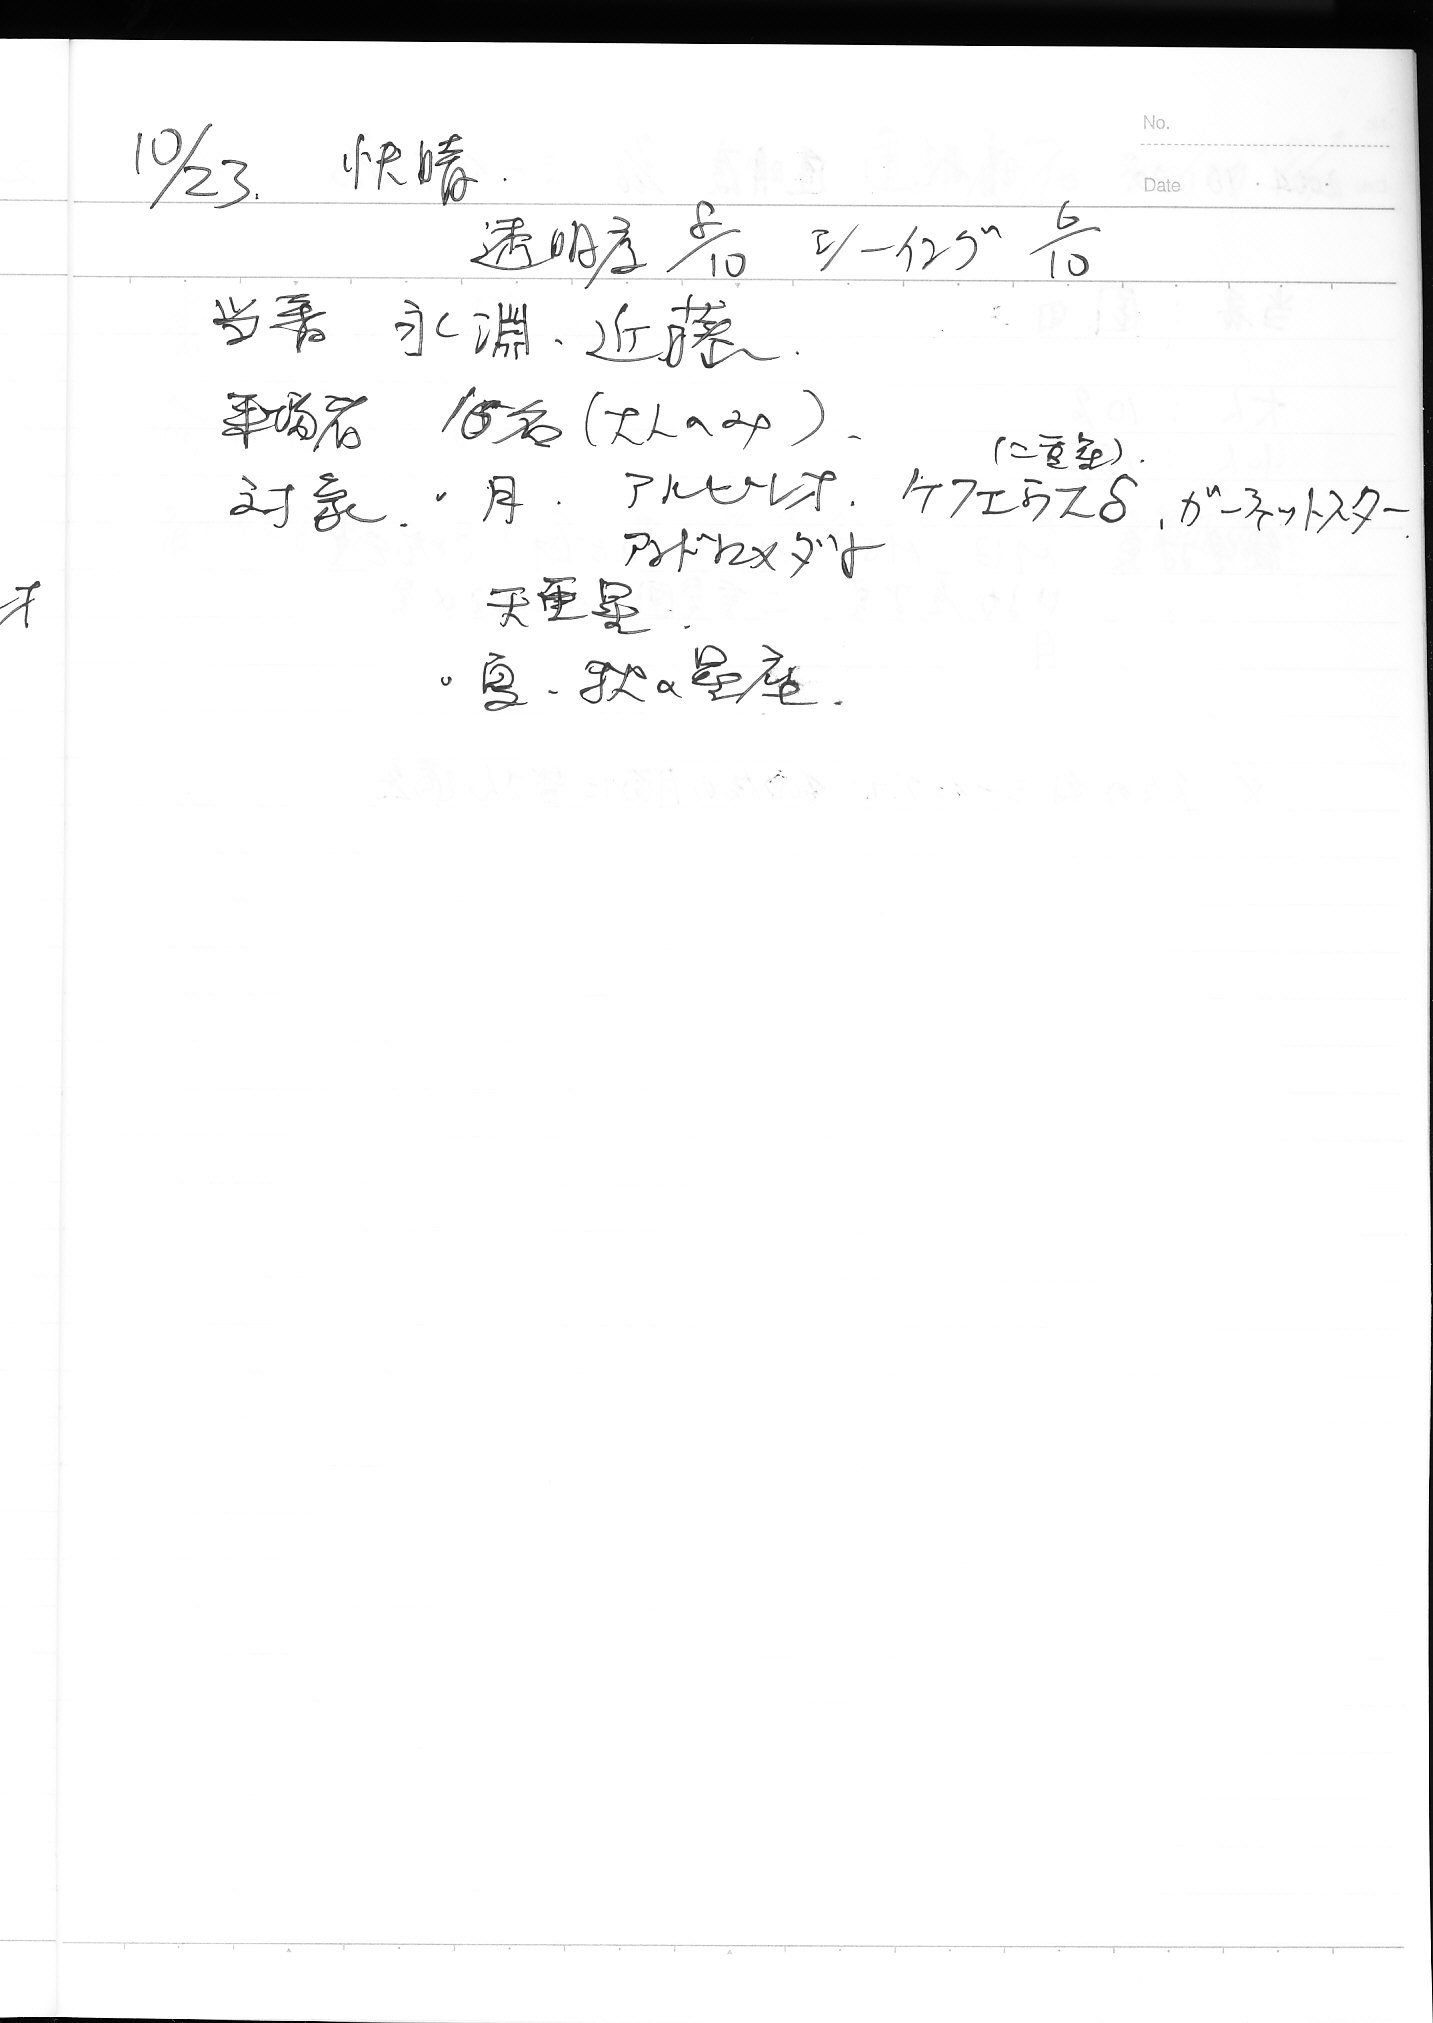 No.
Date
10/23. 快晴.
透明度 8/10 シーイング 6/10
当番 永淵、近藤.
来場者 名(大人のみ).
(二重星).
対象. ・月. アルビレオ. ケフェウスδ, ガーネットスター.
アンドロメダ
天王星.
・夏、秋の星座.
オ